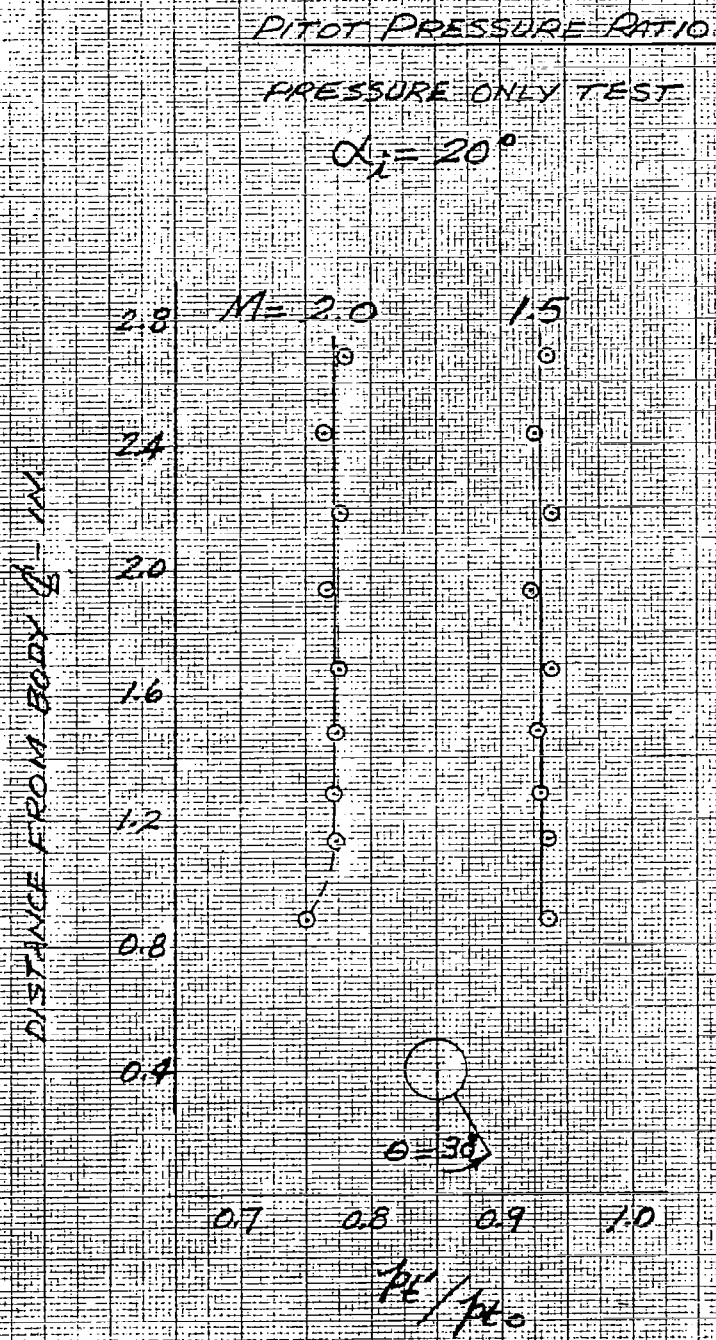 PITOT PRESSURE RATIO
PRESSURE ONLY TEST
αi = 20°
M = 2.0
1.5
2.8
2.4
2.0
1.6
1.2
0.8
0.4
DISTANCE FROM BODY ℄ - IN.
θ = 30°
0.7 0.8 0.9 1.0
pt'/pt₀